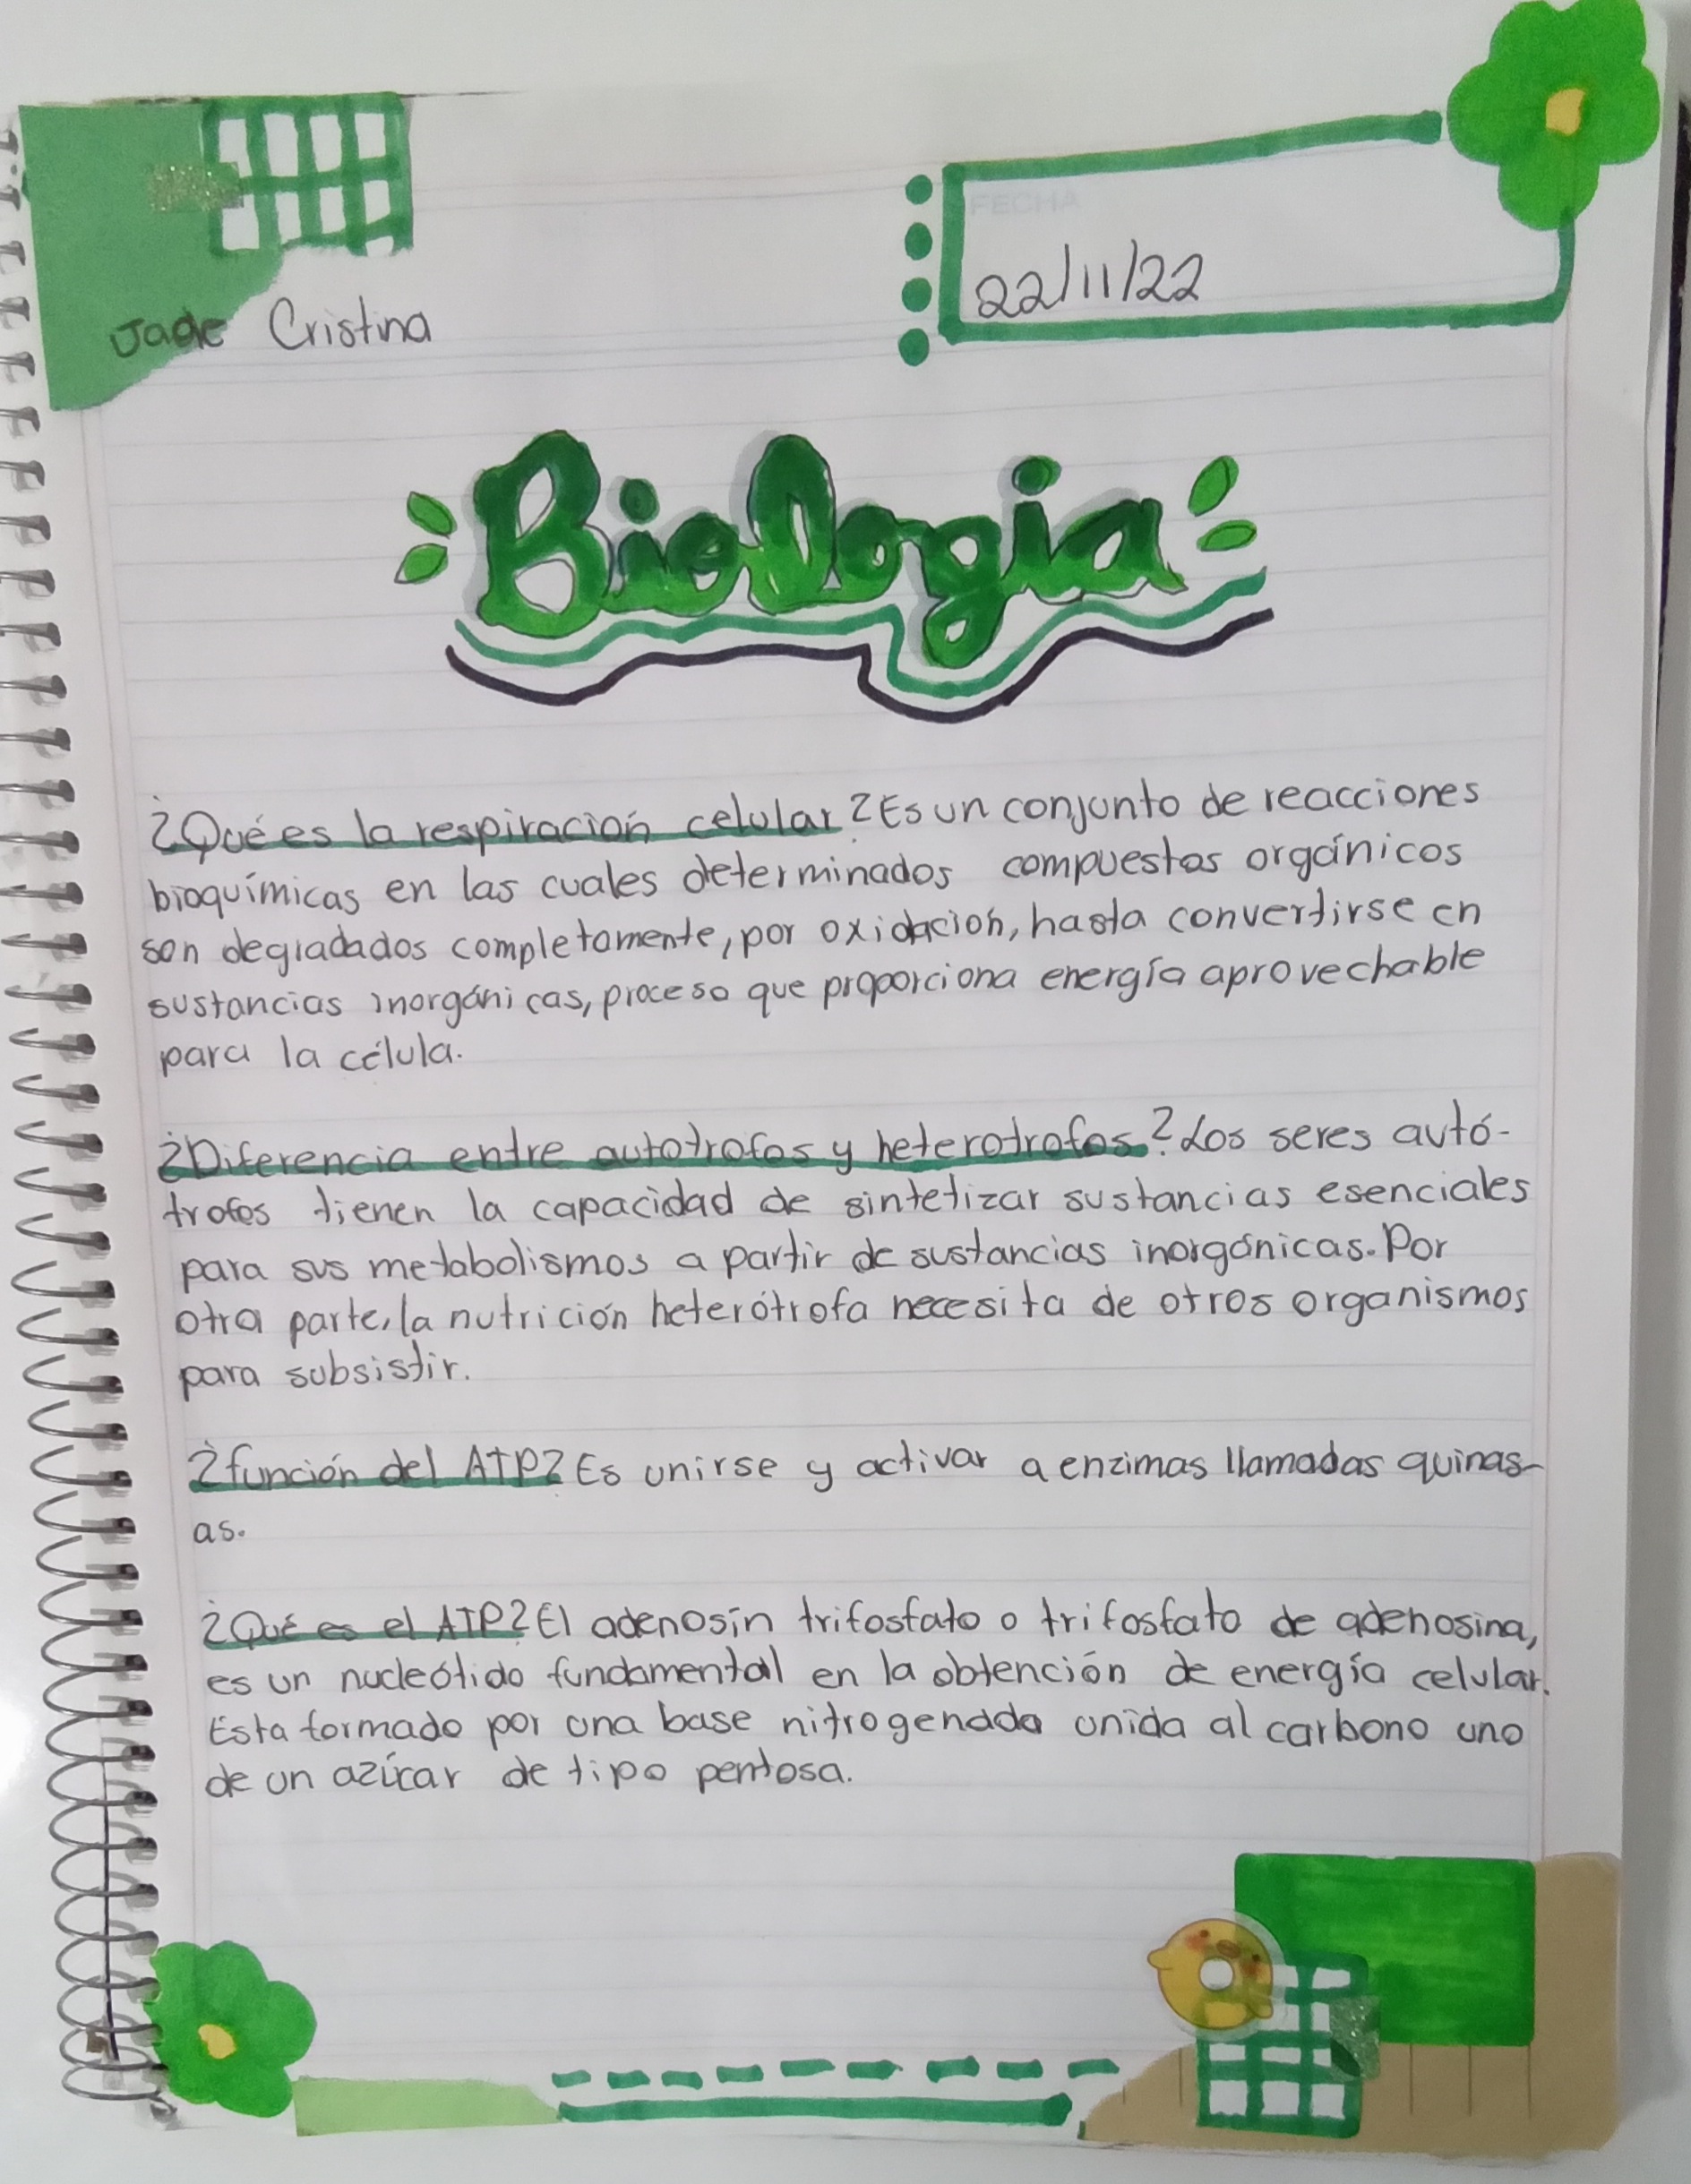 FECHA
22/11/22
Jade Cristina
Biologia
¿Qué es la respiración celular? Es un conjunto de reacciones
bioquímicas en las cuales determinados compuestos orgánicos
son degradados completamente, por oxidación, hasta convertirse en
sustancias inorgánicas, proceso que proporciona energía aprovechable
para la célula.
¿Diferencia entre autotrofos y heterotrofos? Los seres autó-
trofos tienen la capacidad de sintetizar sustancias esenciales
para sus metabolismos a partir de sustancias inorgánicas. Por
otra parte, la nutrición heterótrofa necesita de otros organismos
para subsistir.
¿función del ATP? Es unirse y activar a enzimas llamadas quinas-
as.
¿Qué es el ATP? El adenosín trifosfato o trifosfato de adenosina,
es un nucleótido fundamental en la obtención de energía celular.
Esta formado por una base nitrogenada unida al carbono uno
de un azúcar de tipo pentosa.